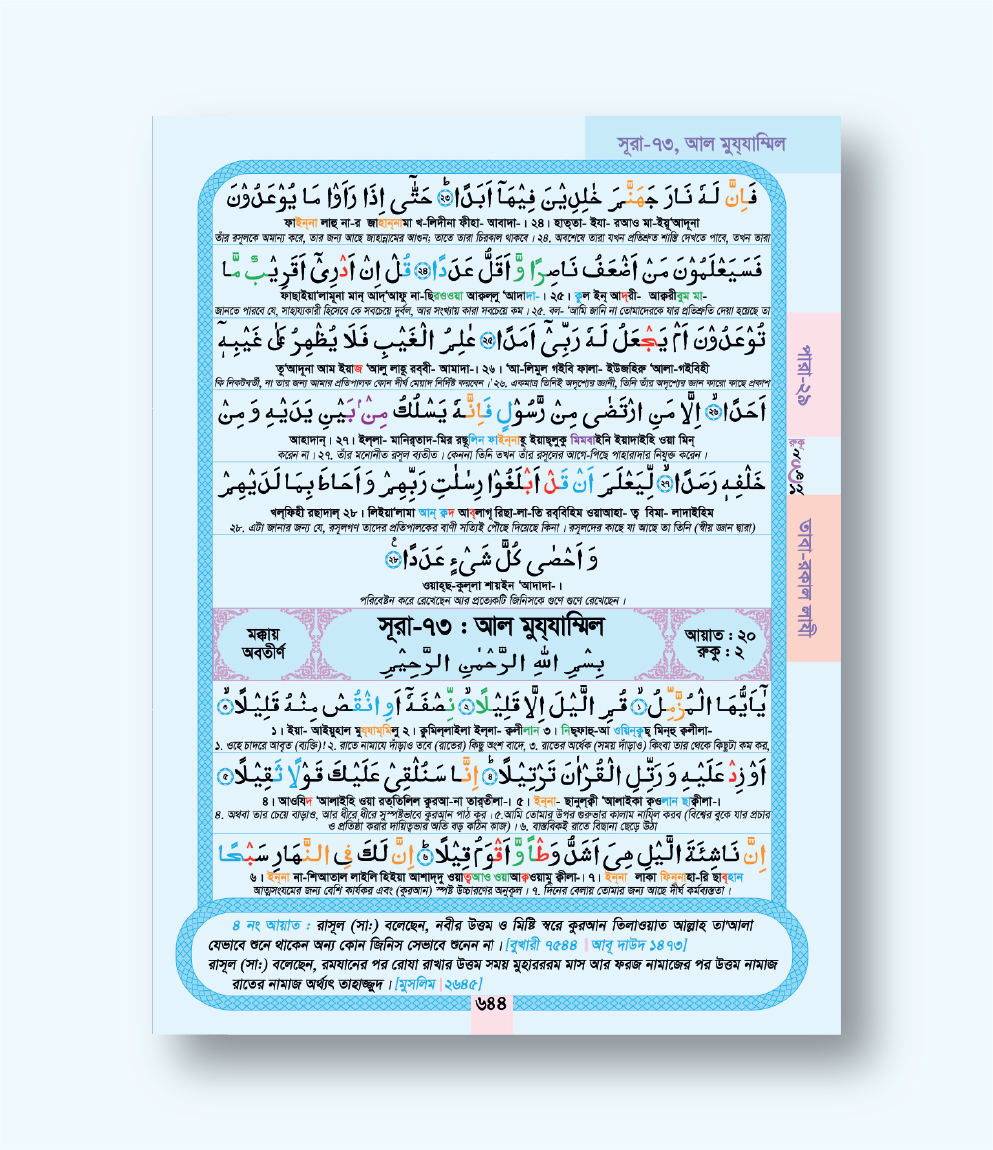 সূরা-৭৩, আল মুয্‌যাম্মিল
فَاِنَّ لَهٗ نَارَ جَهَنَّمَ خٰلِدِيْنَ فِيْهَآ اَبَدًا ۲۳ حَتّٰٓى اِذَا رَاَوْا مَا يُوْعَدُوْنَ
ফাইন্‌না লাহু না-র জাহান্‌নামা খ-লিদীনা ফীহা- আবাদা-। ২৪। হাত্‌তা- ইযা- রআও মা-ইয়ূ'আদূনা
তাঁর রসূলকে অমান্য করে, তার জন্য আছে জাহান্নামের আগুন; তাতে তারা চিরকাল থাকবে। ২৪. অবশেষে তারা যখন প্রতিশ্রুত শাস্তি দেখতে পাবে, তখন তারা
فَسَيَعْلَمُوْنَ مَنْ اَضْعَفُ نَاصِرًا وَّاَقَلُّ عَدَدًا ۲۴ قُلْ اِنْ اَدْرِيْٓ اَقَرِيْبٌ مَّا
ফাছাইয়া'লামূনা মান্‌ আদ্'আফু না-ছিরওওয়া আক্বল্‌লু 'আদাদা-। ২৫। ক্বুল ইন্‌ আদ্‌রী- আক্বরীবুম মা-
জানতে পারবে যে, সাহায্যকারী হিসেবে কে সবচেয়ে দুর্বল, আর সংখ্যায় কারা সবচেয়ে কম। ২৫. বল- 'আমি জানি না তোমাদেরকে যার প্রতিশ্রুতি দেয়া হয়েছে তা
تُوْعَدُوْنَ اَمْ يَجْعَلُ لَهٗ رَبِّيْٓ اَمَدًا ۲۵ عٰلِمُ الْغَيْبِ فَلَا يُظْهِرُ عَلٰى غَيْبِهٖٓ
তূ'আদূনা আম ইয়াজ 'আলু লাহূ রব্‌বী- আমাদা-। ২৬। 'আ-লিমুল গইবি ফালা- ইউজহিরু 'আলা-গইবিহী
কি নিকটবর্তী, না তার জন্য আমার প্রতিপালক কোন দীর্ঘ মেয়াদ নির্দিষ্ট করবেন।' ২৬. একমাত্র তিনিই অদৃশ্যের জ্ঞানী, তিনি তাঁর অদৃশ্যের জ্ঞান কারো কাছে প্রকাশ
اَحَدًا ۲۶ اِلَّا مَنِ ارْتَضٰى مِنْ رَّسُوْلٍ فَاِنَّهٗ يَسْلُكُ مِنْۢ بَيْنِ يَدَيْهِ وَ مِنْ
আহাদান্‌। ২৭। ইল্‌লা- মানির্‌তাদ-মির রছূলিন ফাইন্‌নাহূ ইয়াছ্‌লুকু মিমবাইনি ইয়াদাইহি ওয়া মিন্‌
করেন না। ২৭. তাঁর মনোনীত রসূল ব্যতীত। কেননা তিনি তখন তাঁর রসূলের আগে-পিছে পাহারাদার নিযুক্ত করেন।
خَلْفِهٖ رَصَدًا ۲۷ لِّيَعْلَمَ اَنْ قَدْ اَبْلَغُوْا رِسٰلٰتِ رَبِّهِمْ وَ اَحَاطَ بِمَا لَدَيْهِمْ
খল্‌ফিহী রছাদাল্‌ ২৮। লিইয়া'লামা আন্‌ ক্বদ আব্‌লাগূ রিছা-লা-তি রব্‌বিহিম ওয়াআহা- ত্ব বিমা- লাদাইহিম
২৮. এটা জানার জন্য যে, রসূলগণ তাদের প্রতিপালকের বাণী সত্যিই পৌঁছে দিয়েছে কিনা। রসূলদের কাছে যা আছে তা তিনি (স্বীয় জ্ঞান দ্বারা)
وَ اَحْصٰى كُلَّ شَيْءٍ عَدَدًا ۲۸
ওয়াহ্‌ছ-কুল্‌লা শায়ইন 'আদাদা-।
পরিবেষ্টন করে রেখেছেন আর প্রত্যেকটি জিনিসকে গুণে গুণে রেখেছেন।
মক্কায় অবতীর্ণ
সূরা-৭৩ : আল মুয্‌যাম্মিল
আয়াত : ২০
রুকু : ২
بِسْمِ اللّٰهِ الرَّحْمٰنِ الرَّحِيْمِ
يٰٓاَيُّهَا الْمُزَّمِّلُ ۱ قُمِ الَّيْلَ اِلَّا قَلِيْلًا ۲ نِّصْفَهٗٓ اَوِ انْقُصْ مِنْهُ قَلِيْلًا ۳
১। ইয়া- আইয়্যুহাল মুয্‌যাম্‌মিলু ২। ক্বুমিল্‌লাইলা ইল্‌লা- ক্বলীলান ৩। নিছ্‌ফাহূ-আ ওয়িন্‌ক্বুছ্‌ মিন্‌হু ক্বলীলা-
১. ওহে চাদরে আবৃত (ব্যক্তি)! ২. রাতে নামাযে দাঁড়াও তবে (রাতের) কিছু অংশ বাদে, ৩. রাতের অর্ধেক (সময় দাঁড়াও) কিংবা তার থেকে কিছুটা কম কর,
اَوْ زِدْ عَلَيْهِ وَ رَتِّلِ الْقُرْاٰنَ تَرْتِيْلًا ۴ اِنَّا سَنُلْقِيْ عَلَيْكَ قَوْلًا ثَقِيْلًا ۵
৪। আওযিদ 'আলাইহি ওয়া রত্‌তিলিল ক্বুরআ-না তার্‌তীলা-। ৫। ইন্‌না- ছানুল্‌ক্বী 'আলাইকা ক্বওলান ছাক্বীলা-।
৪. অথবা তার চেয়ে বাড়াও, আর ধীরে ধীরে সুস্পষ্টভাবে কুরআন পাঠ কর। ৫.আমি তোমার উপর গুরুভার কালাম নাযিল করব (বিশ্বের বুকে যার প্রচার
ও প্রতিষ্ঠা করার দায়িত্বভার অতি বড় কঠিন কাজ)। ৬. বাস্তবিকই রাতে বিছানা ছেড়ে উঠা
اِنَّ نَاشِئَةَ الَّيْلِ هِيَ اَشَدُّ وَطْاً وَّاَقْوَمُ قِيْلًا ۶ اِنَّ لَكَ فِي النَّهَارِ سَبْحًا
৬। ইন্‌না না-শিআতাল লাইলি হিইয়া আশাদ্‌দু ওয়াত্বআও ওয়াআক্বওয়ামু ক্বীলা-। ৭। ইন্‌না লাকা ফিন্‌নাহা-রি ছাব্‌হান
আত্মসংযমের জন্য বেশি কার্যকর এবং (কুরআন) স্পষ্ট উচ্চারণের অনুকূল। ৭. দিনের বেলায় তোমার জন্য আছে দীর্ঘ কর্মব্যস্ততা।
৪ নং আয়াত : রাসূল (সা:) বলেছেন, নবীর উত্তম ও মিষ্টি স্বরে কুরআন তিলাওয়াত আল্লাহ তা'আলা
যেভাবে শুনে থাকেন অন্য কোন জিনিস সেভাবে শুনেন না। [বুখারী ৭৫৪৪ | আবূ দাউদ ১৪৭৩]
রাসূল (সা:) বলেছেন, রমযানের পর রোযা রাখার উত্তম সময় মুহাররম মাস আর ফরজ নামাজের পর উত্তম নামাজ
রাতের নামাজ অর্থ্যৎ তাহাজ্জুদ। [মুসলিম | ২৬৪৫]
৬৪৪
পারা-২৯
রুকু'
তাবা-রকাল লাযী